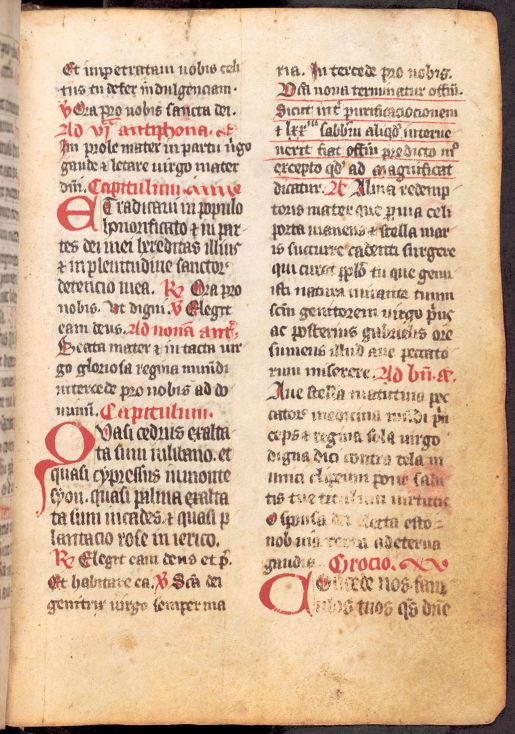 Et impetratam nobis celi
tus tu defer indulgenciam.
V Ora pro nobis sancta dei.
Ad vi antiphona. ae
In prole mater in partu virgo
gaude & letare virgo mater
dni. Capitulum.
ET radicavi in populo
honorificato & in par
tes dei mei hereditas illius
& in plenitudine sanctor
detencio mea. R Ora pro
nobis. Ut digni. V Elegit
eam deus. Ad nonā ant
Beata mater & intacta vir
go gloriosa regina mundi
intercede pro nobis ad do
minū. Capitulum.
Quasi cedrus exalta
ta sum in libano. et
quasi cypressus in monte
syon. quasi palma exalta
ta sum in cades. & quasi p
lantacio rose in ierico.
R Elegit eam deus et p.
Et habitare ea. V Scā dei
genitrix virgo semper ma
ria. Intercede pro nobis.
Usq nona terminatur offm.
Sicut int purificacionem
& lxx sabbm aliqd interve
nerit fiat offm predicto mo
excepto qd ad magnificat
dicatur. A Alma redemp
toris mater que pervia celi
porta manens & stella mar
is succurre cadenti surgere
qui curat pplo tu que genu
isti natura mirante tuum
scm genitorem virgo pus
ac posterius gabrielis ore
sumens illud ave peccato
rum miserere. Ad bn. ae.
Ave stella matutina pec
catorū medicina mūdi pn
ceps & regina sola virgo
digna dici contra tela in
imici clipeum pone salu
tis tue titulum virtutis
O sponsa dei electa esto
nob via recta ad eterna
gaudia. Orocio.
Concede nos fam
ulos tuos qs dne